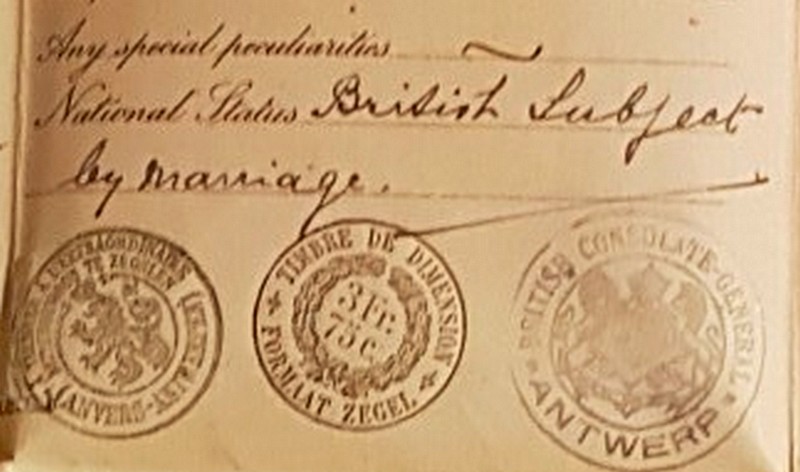 Any special peculiarities ~
National Status British Subject
by marriage.
L'EXTRAORDINAIRE
TE ZEGELEN
(ANVERS-ANT
TIMBRE DE DIMENSION
3 Fr.
75 c.
FORMAAT ZEGEL
BRITISH CONSULATE-GENERAL
ANTWERP